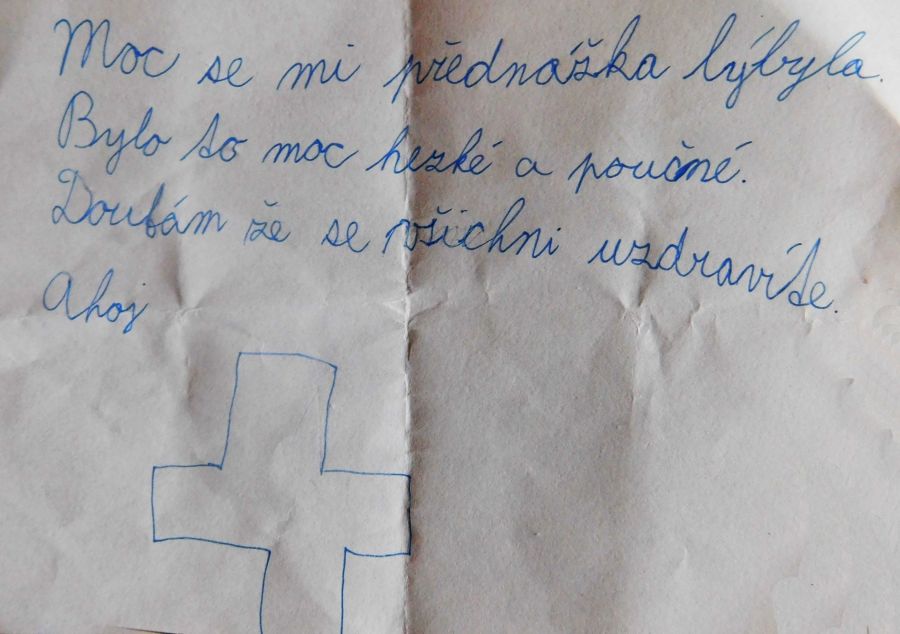 Moc se mi přednáška lýbyla.
Bylo to moc hezké a poučné.
Doufám že se všichni uzdravíte.
Ahoj